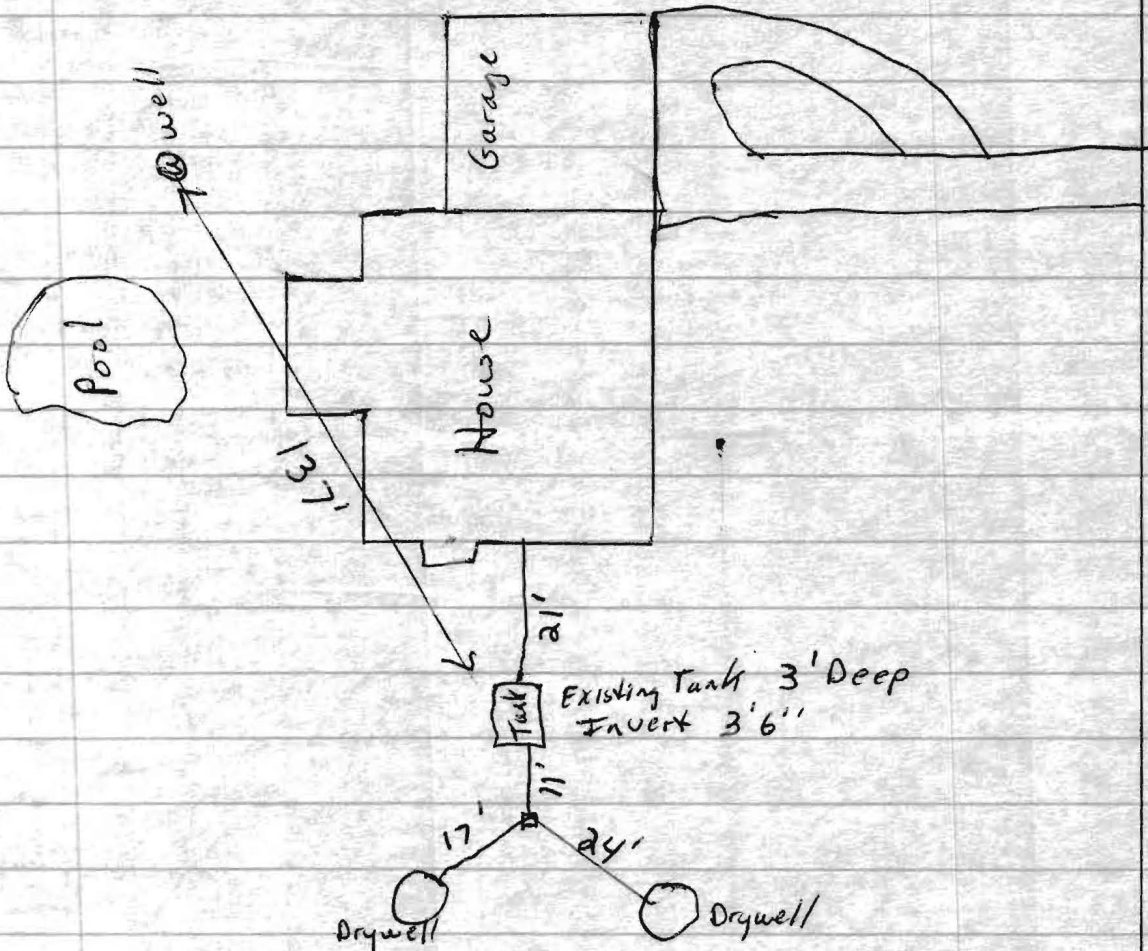 Garage
well
Pool
House
137'
21'
Tank
Existing Tank 3' Deep
Invert 3'6''
11'
17'
24'
Drywell
Drywell